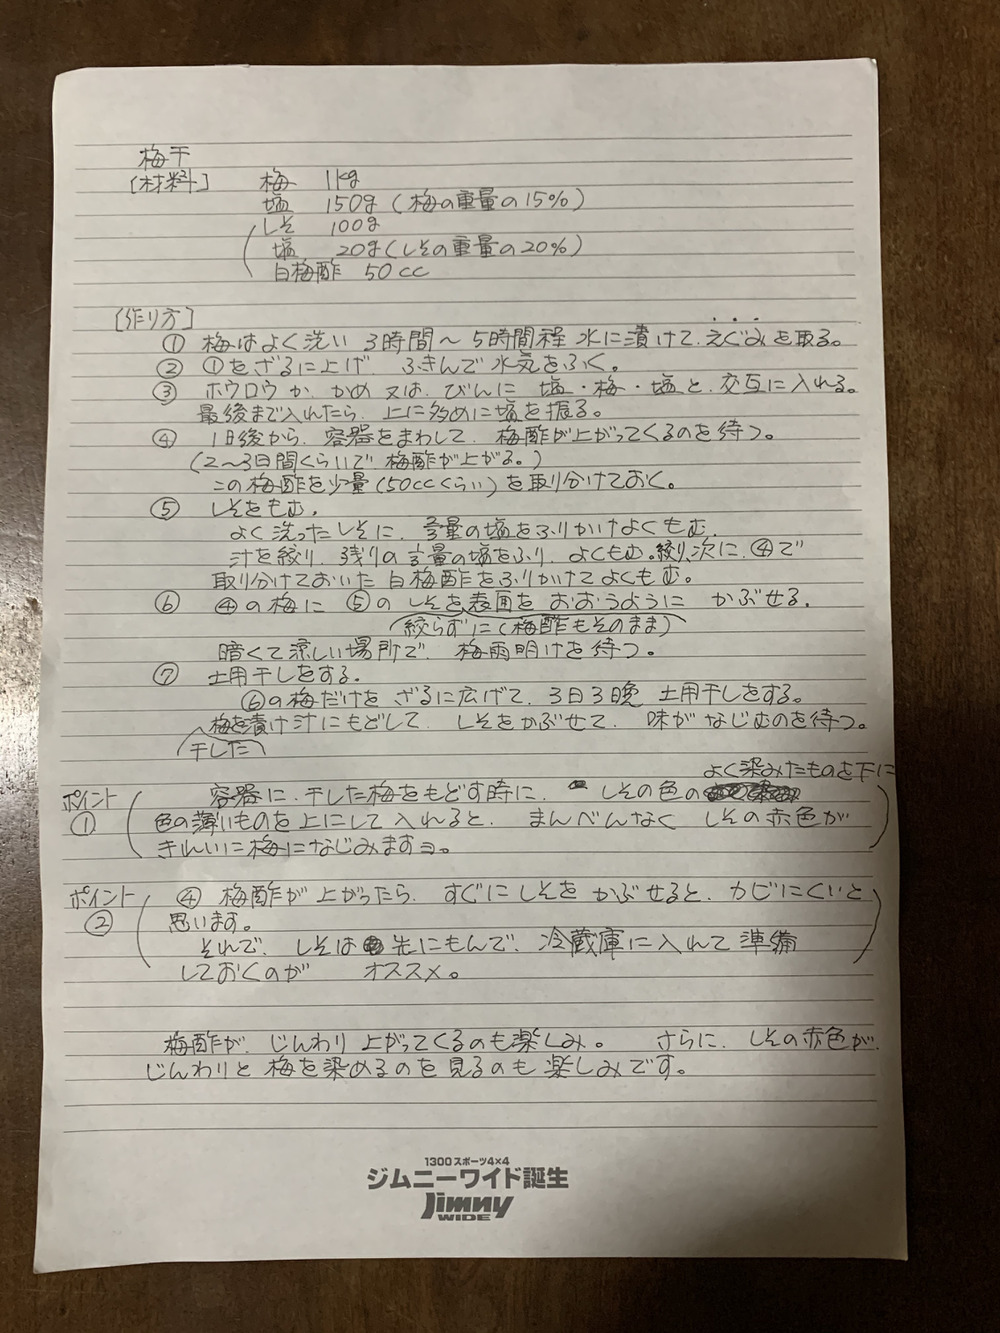 梅干
[材料] 梅 1kg
塩 150g (梅の重量の15%)
しそ 100g
塩 20g (しその重量の20%)
白梅酢 50cc
[作り方]
① 梅はよく洗い 3時間～5時間程 水に漬けて えぐみを取る。
② ①をざるに上げ ふきんで水気をふく。
③ ホウロウか、かめ又は、びんに 塩・梅・塩と、交互に入れる。
最後まで入れたら、上に多めに塩を振る。
④ 1日後から、容器をまわして、梅酢が上がってくるのを待つ。
(2～3日間くらいで 梅酢が上がる。)
この梅酢を少量(50ccくらい)を取り分けておく。
⑤ しそをもむ。
よく洗ったしそに、 量の塩をふりかけよくもむ。
汁を絞り、残りの 量の塩をふり、よくもむ。絞り、次に、④で
取り分けておいた 白梅酢をふりかけてよくもむ。
⑥ ④の梅に ⑤の しそを表面を おおうように かぶせる。
絞らずに(梅酢もそのまま)
暗くて涼しい場所で、梅雨明けを待つ。
⑦ 土用干しをする。
⑥の梅だけを ざるに広げて、3日3晩 土用干しをする。
梅を漬け汁にもどして、しそをかぶせて、味がなじむのを待つ。
干した
よく染みたものを下に
ポイント 容器に、干した梅をもどす時に、 しその色の
① 色の薄いものを上にして入れると、まんべんなく しその赤色が
きれいに梅になじみますヨ。
ポイント ④ 梅酢が上がったら、すぐにしそを かぶせると、カビにくいと
② 思います。
それで、しそは 先にもんで、冷蔵庫に入れて準備
しておくのが オススメ。
梅酢が、じんわり上がってくるのも楽しみ。 さらに、しその赤色が、
じんわりと 梅を染めるのを見るのも楽しみです。
1300スポーツ4×4
ジムニーワイド誕生
Jimny
WIDE